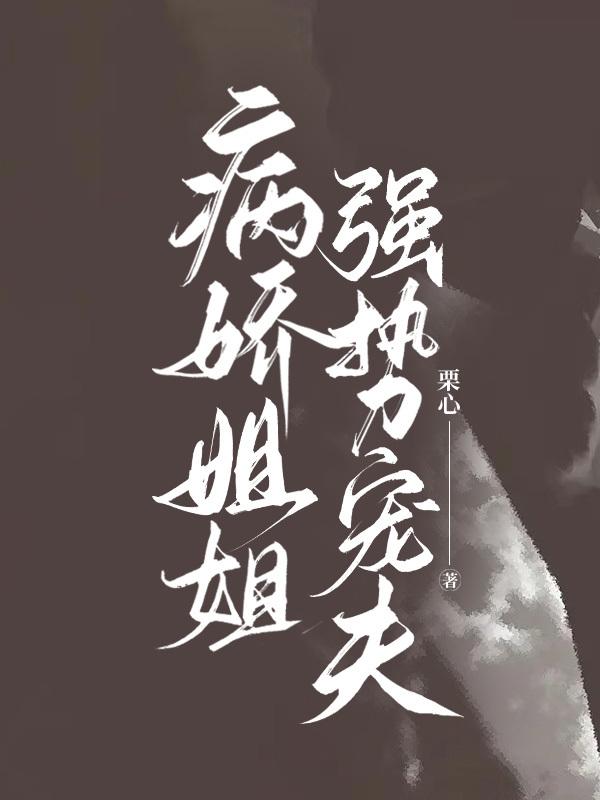 病娇姐姐
强势宠夫
栗心
著